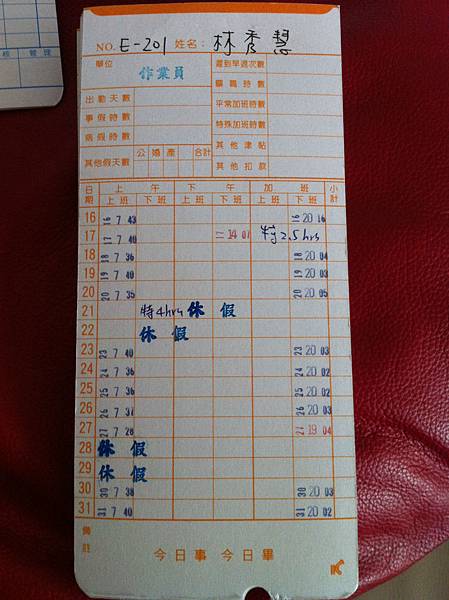 NO. E-201 姓名: 林秀慧
單位 作業員 遲到早退次數
曠職時數
出勤天數 平常加班時數
事假時數 特殊加班時數
病假時數 其他津帖
其他假天數 公 婚 產 合計 其他扣款
日期 上午 下午 加班 小計
上班 下班 上班 下班 上班 下班
16 16 7 43 16 20 16
17 17 7 40 14 01 特2.5hrs
18 18 7 36 18 20 04
19 19 7 40 19 20 03
20 20 7 35 20 20 05
21 特4hrs 休假
22 休假
23 23 7 40 23 20 03
24 24 7 36 24 20 02
25 25 7 36 25 20 02
26 26 7 37 26 20 03
27 27 7 28 27 19 04
28 休假
29 休假
30 30 7 38 30 20 03
31 31 7 40 31 20 02
備註
今日事 今日畢
管理